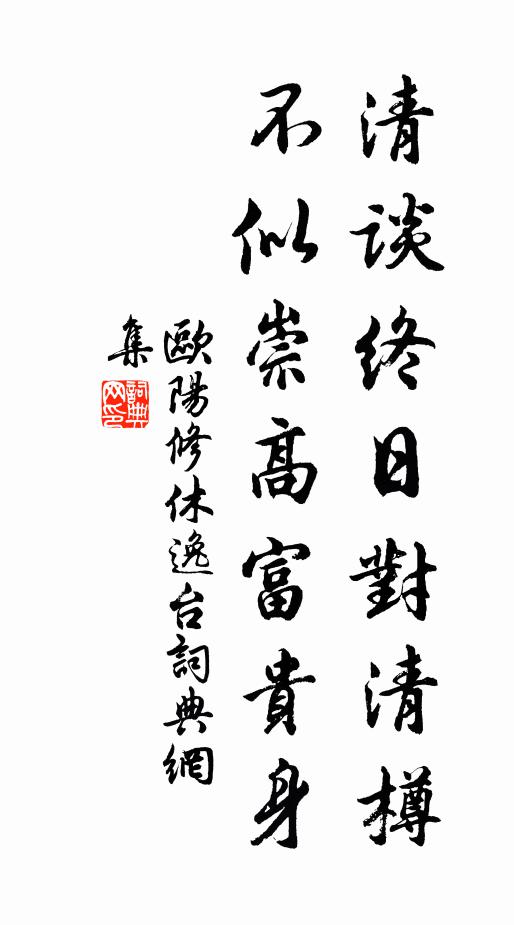 清談終日對清樽
不似崇高富貴身
歐陽修休逸台詞典網
集
詞典
网印